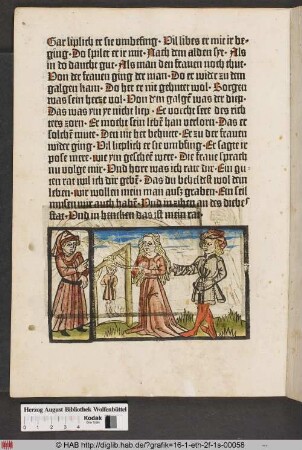 Gar lieplich er sie umbefing · Vil libes er mit ir be
ging · Do spilet er ir mit · Nach dem alden syt · Als
in do dauchte gut · Als man den frauen noch thut
Von der frauen ging der man · Do er wider zu dem
galgen kam · Do het er nit gehutet wol · Sorgen
was sein hercze vol · Von dem galgen was der diep
Das was ym nicht liep · Er vorcht sere des rich
ters zorn · Er mocht sein leben han verlorn · Das er
solde
Den nit her behutet · Er zu der frauen
wider ging · Vil lieplich er sie umbfing · Er saget ir
wie ym geschehen were · Die frau sprach
nu volge mir · Und hore was ich rate dir · Ein gu
ten rat wil ich dir geben · Das du beheldest wol dein
leben · wir wollen mein man auß graben · Ein seil
mussen wir auch haben · Und in an des diebes
stat · Und in hencken das ist mein rat ·
Herzog August Bibliothek Wolfenbüttel
Kodak
© HAB http://diglib.hab.de/?grafik=16-1-eth-2f-1s-00058